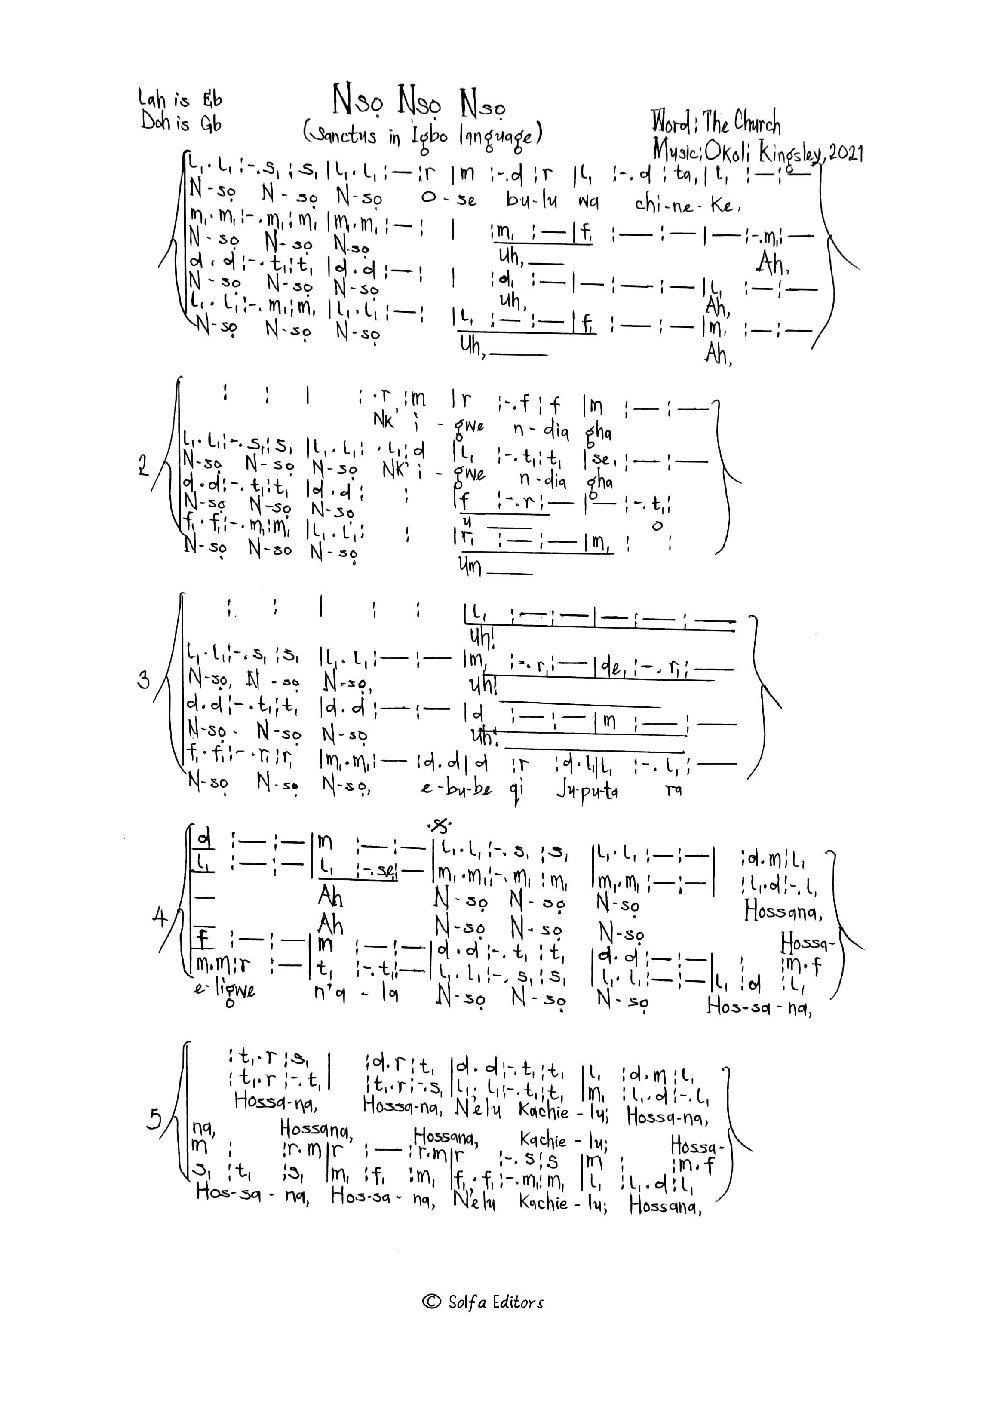 Lah is Eb
Doh is Gb
Nsọ Nsọ Nsọ
(Sanctus in Igbo language)
Word; The Church
Music; Okoli Kingsley, 2021
l₁.l₁:-.s₁:s₁|l₁.l₁:—:r|m:-.d:r|l₁:-.d:ta₁|t₁:—:—
N-sọ N-sọ N-sọ O-se bu-lu wa chi-ne-Ke,
m₁.m₁:-.m₁:m₁|m₁.m₁:—:| :m₁:—|f₁:—:—|—:-.m₁:—
N-sọ N-sọ N-sọ Uh, Ah,
d.d:-.t₁:t₁|d.d:—:| :d:—|—:—:—|l₁:—:—
N-sọ N-sọ N-sọ uh, Ah,
l₁.l₁:-.m₁:m₁|l₁.l₁:—:|l₁:—:—|f₁:—:—|m₁:—:—
N-sọ N-sọ N-sọ Uh, Ah,
2
: : | :.r:m|r:-.f:f|m:—:—
Nk' i-gwe n-dia gha
l₁.l₁:-.s₁:s₁|l₁.l₁:.l₁:d|l₁:-.t₁:t₁|se₁:—:—
N-sọ N-sọ N-sọ NK' i-gwe n-dia gha
d.d:-.t₁:t₁|d.d: : |f:-.r:—|—:-.t₁:
N-sọ N-sọ N-sọ u o
f₁.f₁:-.m₁:m₁|l₁.l₁: : |r₁:—:—|m₁: :
N-sọ N-sọ N-sọ Um
3
: : | : : |l₁:—:—|—:—:—
Uh!
l₁.l₁:-.s₁:s₁|l₁.l₁:—:—|m₁:-.r₁:—|de₁:-.r₁:—
N-sọ, N-sọ N-sọ, Uh!
d.d:-.t₁:t₁|d.d:—:—|d:—:—|m:—:—
N-sọ. N-sọ N-sọ Uh!
f₁.f₁:-.r₁:r₁|m₁.m₁:—:d.d|d:r:d.l₁|l₁:-.l₁:—
N-sọ N-sọ N-sọ, e-bu-be gi Ju-pu-ta ra
4
d:—:—|m:—:—|l₁.l₁:-.s₁:s₁|l₁.l₁:—:—| :d.m:l₁
l₁:—:—|l₁:-.se₁:—|m₁.m₁:-.m₁:m₁|m₁.m₁:—:—| :l₁.d:-.l₁
— Ah N-sọ N-sọ N-sọ Hossana,
— Ah N-sọ N-sọ N-sọ Hossa-
f:—:—|m:—:—|d.d:-.t₁:t₁|d.d:—:—| : :m.f
m.m:r:—|t₁:-.t₁:—|l₁.l₁:-.s₁:s₁|l₁.l₁:—:—|l₁:d:l₁
e-ligwe n'a-la N-sọ N-sọ N-sọ Hos-sa-na,
5
:t₁.r:s₁| :d.r:t₁|d.d:-.t₁:t₁|l₁:d.m:l₁
:t₁.r:-.t₁| :t₁.r:-.s₁|l₁.l₁:-.t₁:t₁|m₁:l₁.d:-.l₁
Hossa-na, Hossa-na, N'elu Kachie-lu; Hossa-na,
na, Hossana, Hossana, Kachie-lu; Hossa-
m: :r.m|r:—:r.m|r:-.s:s|m: :m.f
s₁:t₁:s₁|m₁:f₁:m₁|f₁.f₁:-.m₁:m₁|l₁:l₁.d:l₁
Hos-sa-na, Hos-sa-na, N'elu Kachie-lu; Hossana,
© Solfa Editors